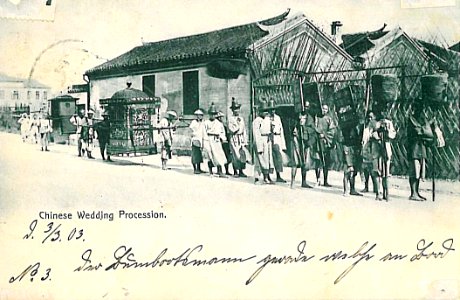 Chinese Wedding Procession.
d. 3/3. 03.
No. 3. der Bumbootsmann gerade welche an Bord